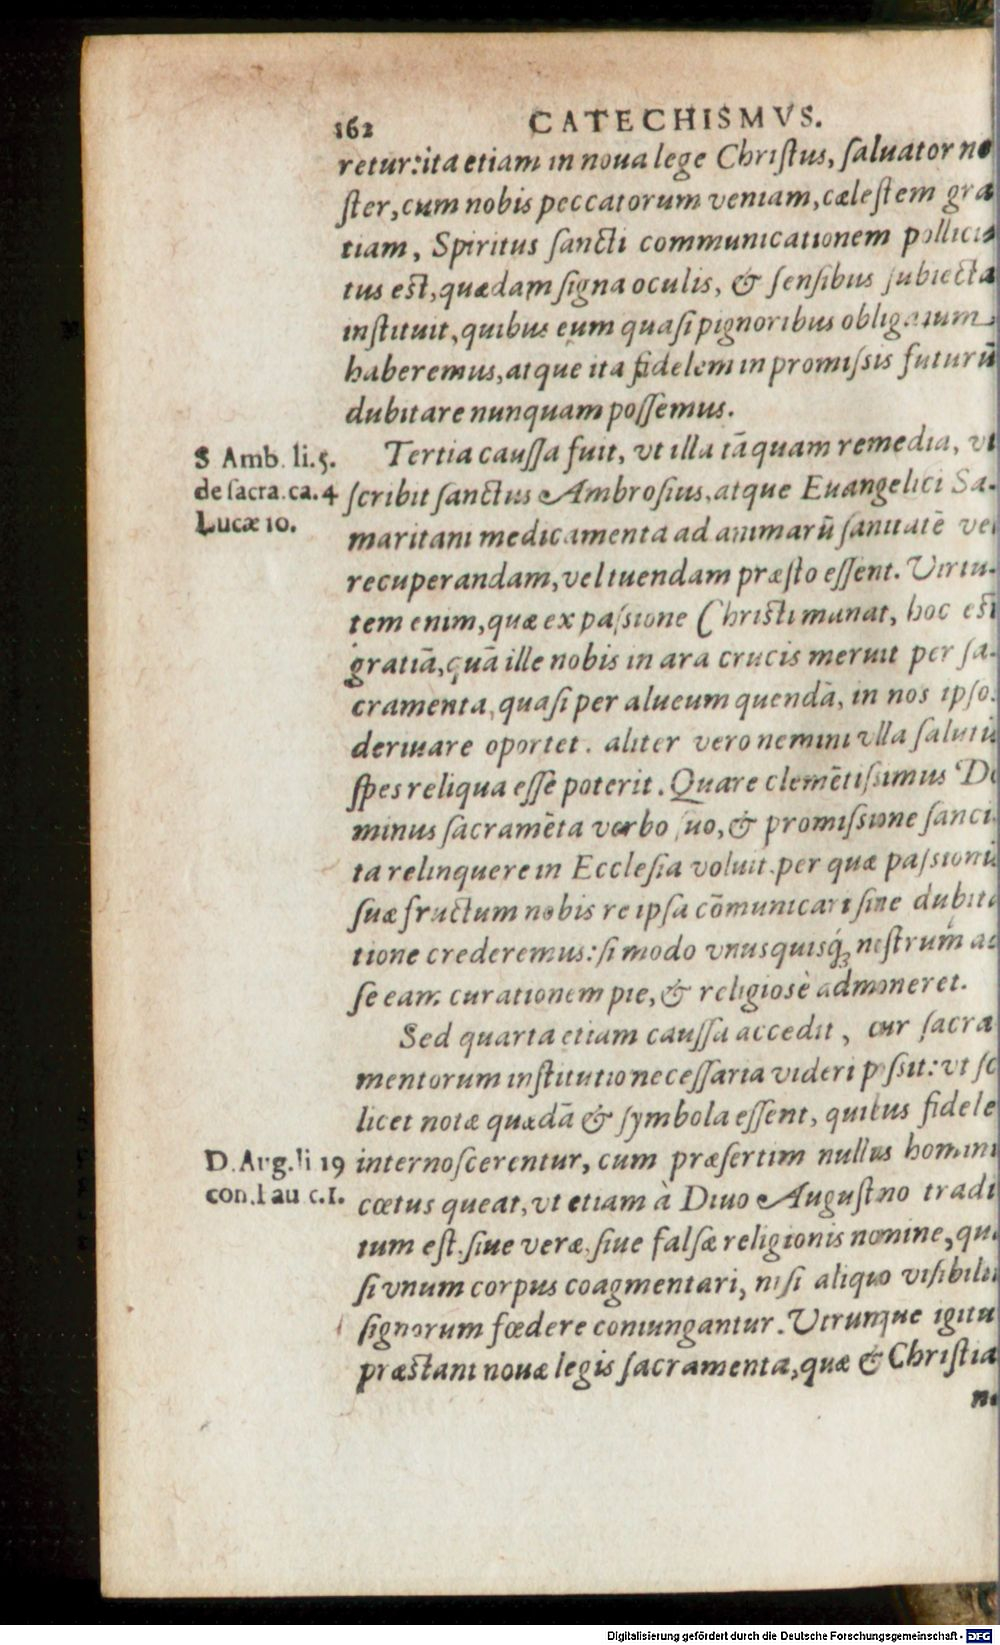 162 CATECHISMVS.
retur: ita etiam in noua lege Chriſtus, ſaluator no
ſter, cum nobis peccatorum veniam, cæleſtem gra
tiam, Spiritus ſancti communicationem pollici
tus eſt, quædam ſigna oculis, & ſenſibus ſubiecta
inſtituit, quibus eum quaſi pignoribus obligatum
haberemus, atque ita fidelem in promiſsis futurū
dubitare nunquam poſſemus.
Tertia cauſſa fuit, vt illa tāquam remedia, vt
S Amb. li. 5.
de ſacra. ca. 4
Lucæ 10.
ſcribit ſanctus Ambroſius, atque Euangelici Sa-
maritani medicamenta ad animarū ſanitatē vel
recuperandam, vel tuendam præſto eſſent. Virtu-
tem enim, quæ ex paſsione Chriſti manat, hoc eſt
gratiā, quā ille nobis in ara crucis meruit per ſa-
cramenta, quaſi per alueum quendā, in nos ipſo.
deriuare oportet. aliter vero nemini vlla ſalutis
ſpes reliqua eſſe poterit. Quare clemētiſsimus Do
minus ſacramēta verbo ſuo, & promiſsione ſanci
ta relinquere in Eccleſia voluit. per quæ paſsionis
ſuæ fructum nobis re ipſa cōmunicari ſine dubita
tione crederemus: ſi modo vnusquisq́; noſtrum ad
ſe eam curationem pie, & religioſè admoneret.
Sed quarta etiam cauſſa accedit, cur ſacra
mentorum inſtitutio neceſſaria videri poſſit: vt ſc
licet notæ quædā & ſymbola eſſent, quibus fidele
D. Aug. li 19
con. Fau c. 1.
internoſcerentur, cum præſertim nullus homini
cœtus queat, vt etiam à Diuo Auguſtino tradi
tum eſt, ſiue veræ, ſiue falſæ religionis nomine, qua
ſi vnum corpus coagmentari, niſi aliquo viſibiliū
ſignorum fœdere coniungantur. Vtrunque igitu
præſtant nouæ legis ſacramenta, quæ & Chriſtia
n.
Digitalisierung gefördert durch die Deutsche Forschungsgemeinschaft - DFG